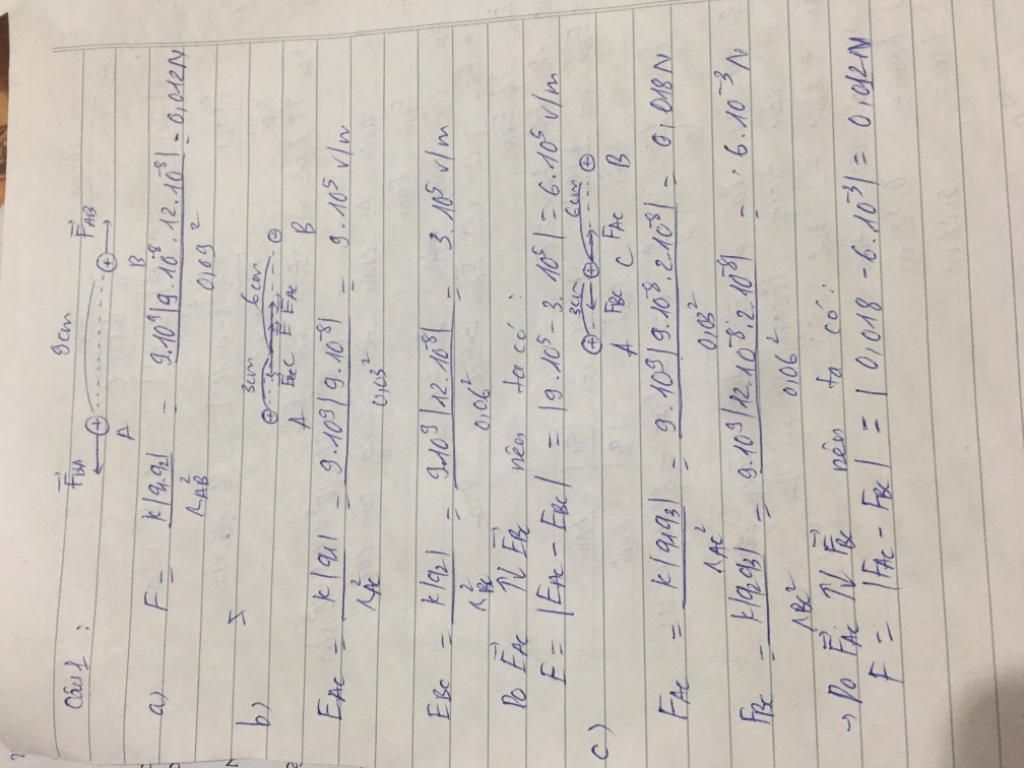 Câu 1 :
9cm
F⃗BA F⃗AB
A B
a) F = k|q1q2| / rAB² = 9.10⁹|9.10⁻⁸.12.10⁻⁸| / 0,09² = 0,012N
b)
3cm 6cm
E⃗BC C E⃗ E⃗AC
A B
EAC = k|q1| / rAC² = 9.10⁹|9.10⁻⁸| / 0,03² = 9.10⁵ V/m
EBC = k|q2| / rBC² = 9.10⁹|12.10⁻⁸| / 0,06² = 3.10⁵ V/m
Do E⃗AC ↑↓ E⃗BC nên ta có :
E = |EAC - EBC| = |9.10⁵ - 3.10⁵| = 6.10⁵ V/m
c)
3cm 6cm
A FBC C FAC B
FAC = k|q1q3| / rAC² = 9.10⁹|9.10⁻⁸.2.10⁻⁸| / 0,03² = 0,018N
FBC = k|q2q3| / rBC² = 9.10⁹|12.10⁻⁸.2.10⁻⁸| / 0,06² = 6.10⁻³ N
→ Do F⃗AC ↑↓ F⃗BC nên ta có :
F = |FAC - FBC| = |0,018 - 6.10⁻³| = 0,012N